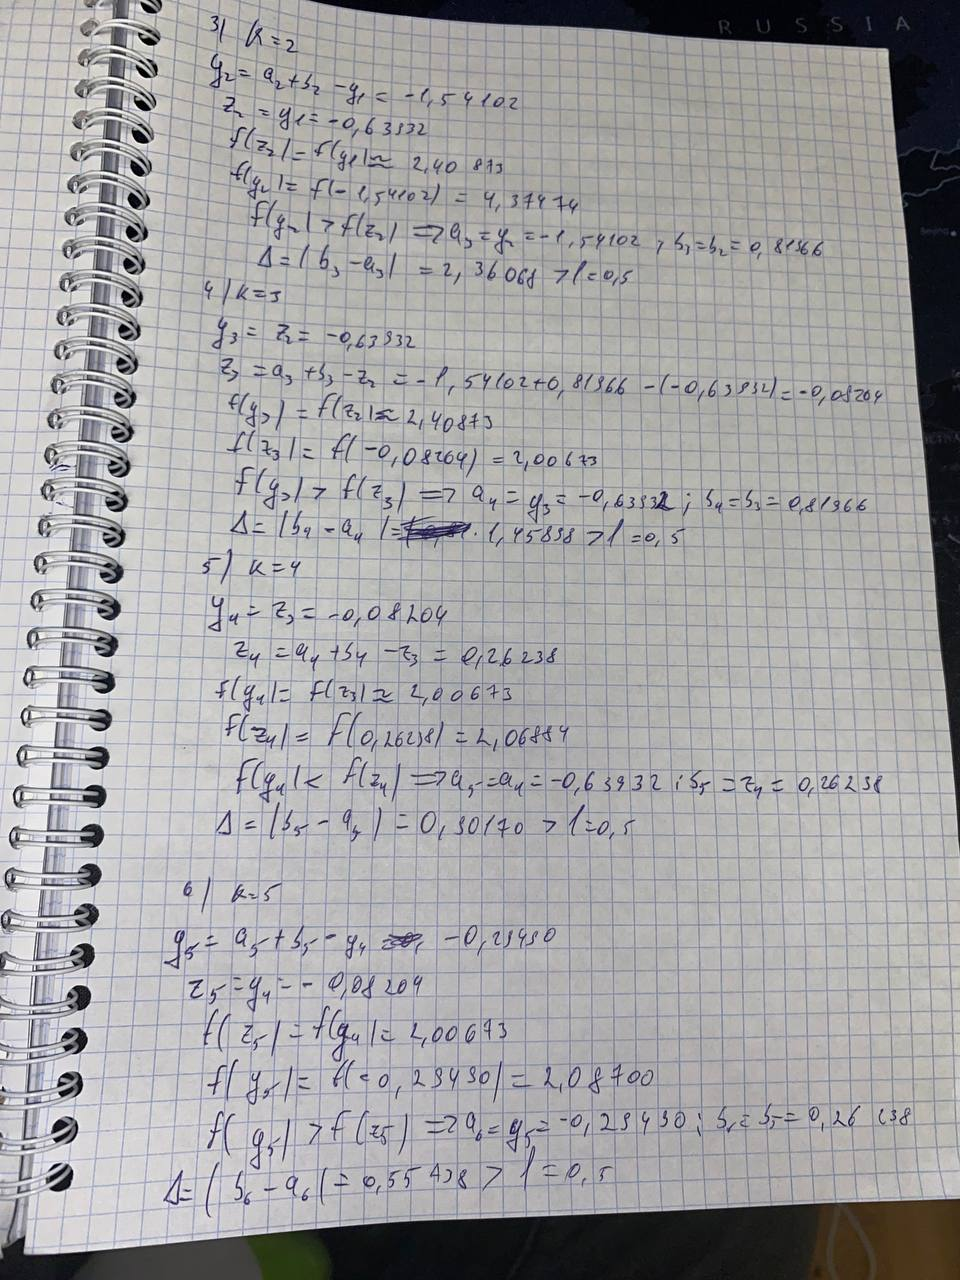 RUSSIA
3) k=2
y₂ = a₂+b₂ - y₁ = -1,54102
z₂ = y₁ = -0,63932
f(z₂) = f(y₁) ≈ 2,40873
f(y₂) = f(-1,54102) = 4,37474
f(y₂) > f(z₂) => a₃ = y₂ = -1,54102 ; b₃ = b₂ = 0,81966
Δ = |b₃ - a₃| = 2,36068 > l = 0,5
4) k=3
y₃ = z₂ = -0,63932
z₃ = a₃ + b₃ - z₂ = -1,54102+0,81966 -(-0,63932) = -0,08204
f(y₃) = f(z₂) ≈ 2,40873
f(z₃) = f(-0,08204) = 2,00673
f(y₃) > f(z₃) => a₄ = y₃ = -0,63932 ; b₄ = b₃ = 0,81966
Δ = |b₄ - a₄| = 1,45898 > l = 0,5
5) k=4
y₄ = z₃ = -0,08204
z₄ = a₄ + b₄ - z₃ = 0,26238
f(y₄) = f(z₃) ≈ 2,00673
f(z₄) = f(0,26238) = 2,06884
f(y₄) < f(z₄) => a₅ = a₄ = -0,63932 ; b₅ = z₄ = 0,26238
Δ = |b₅ - a₅| = 0,90170 > l = 0,5
6) k=5
y₅ = a₅ + b₅ - y₄ -0,29490
z₅ = y₄ = -0,08204
f(z₅) = f(y₄) = 2,00673
f(y₅) = f(-0,29490) = 2,08700
f(y₅) > f(z₅) => a₆ = y₅ = -0,29490 ; b₆ = b₅ = 0,26238
Δ = |b₆ - a₆| = 0,55738 > l = 0,5